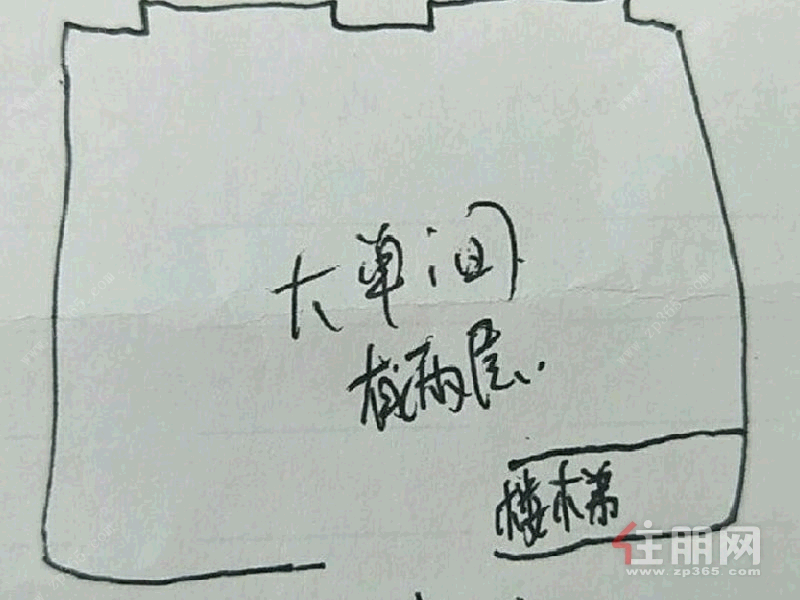 大单间
截两层.
楼梯
住朋网
www.zp365.com